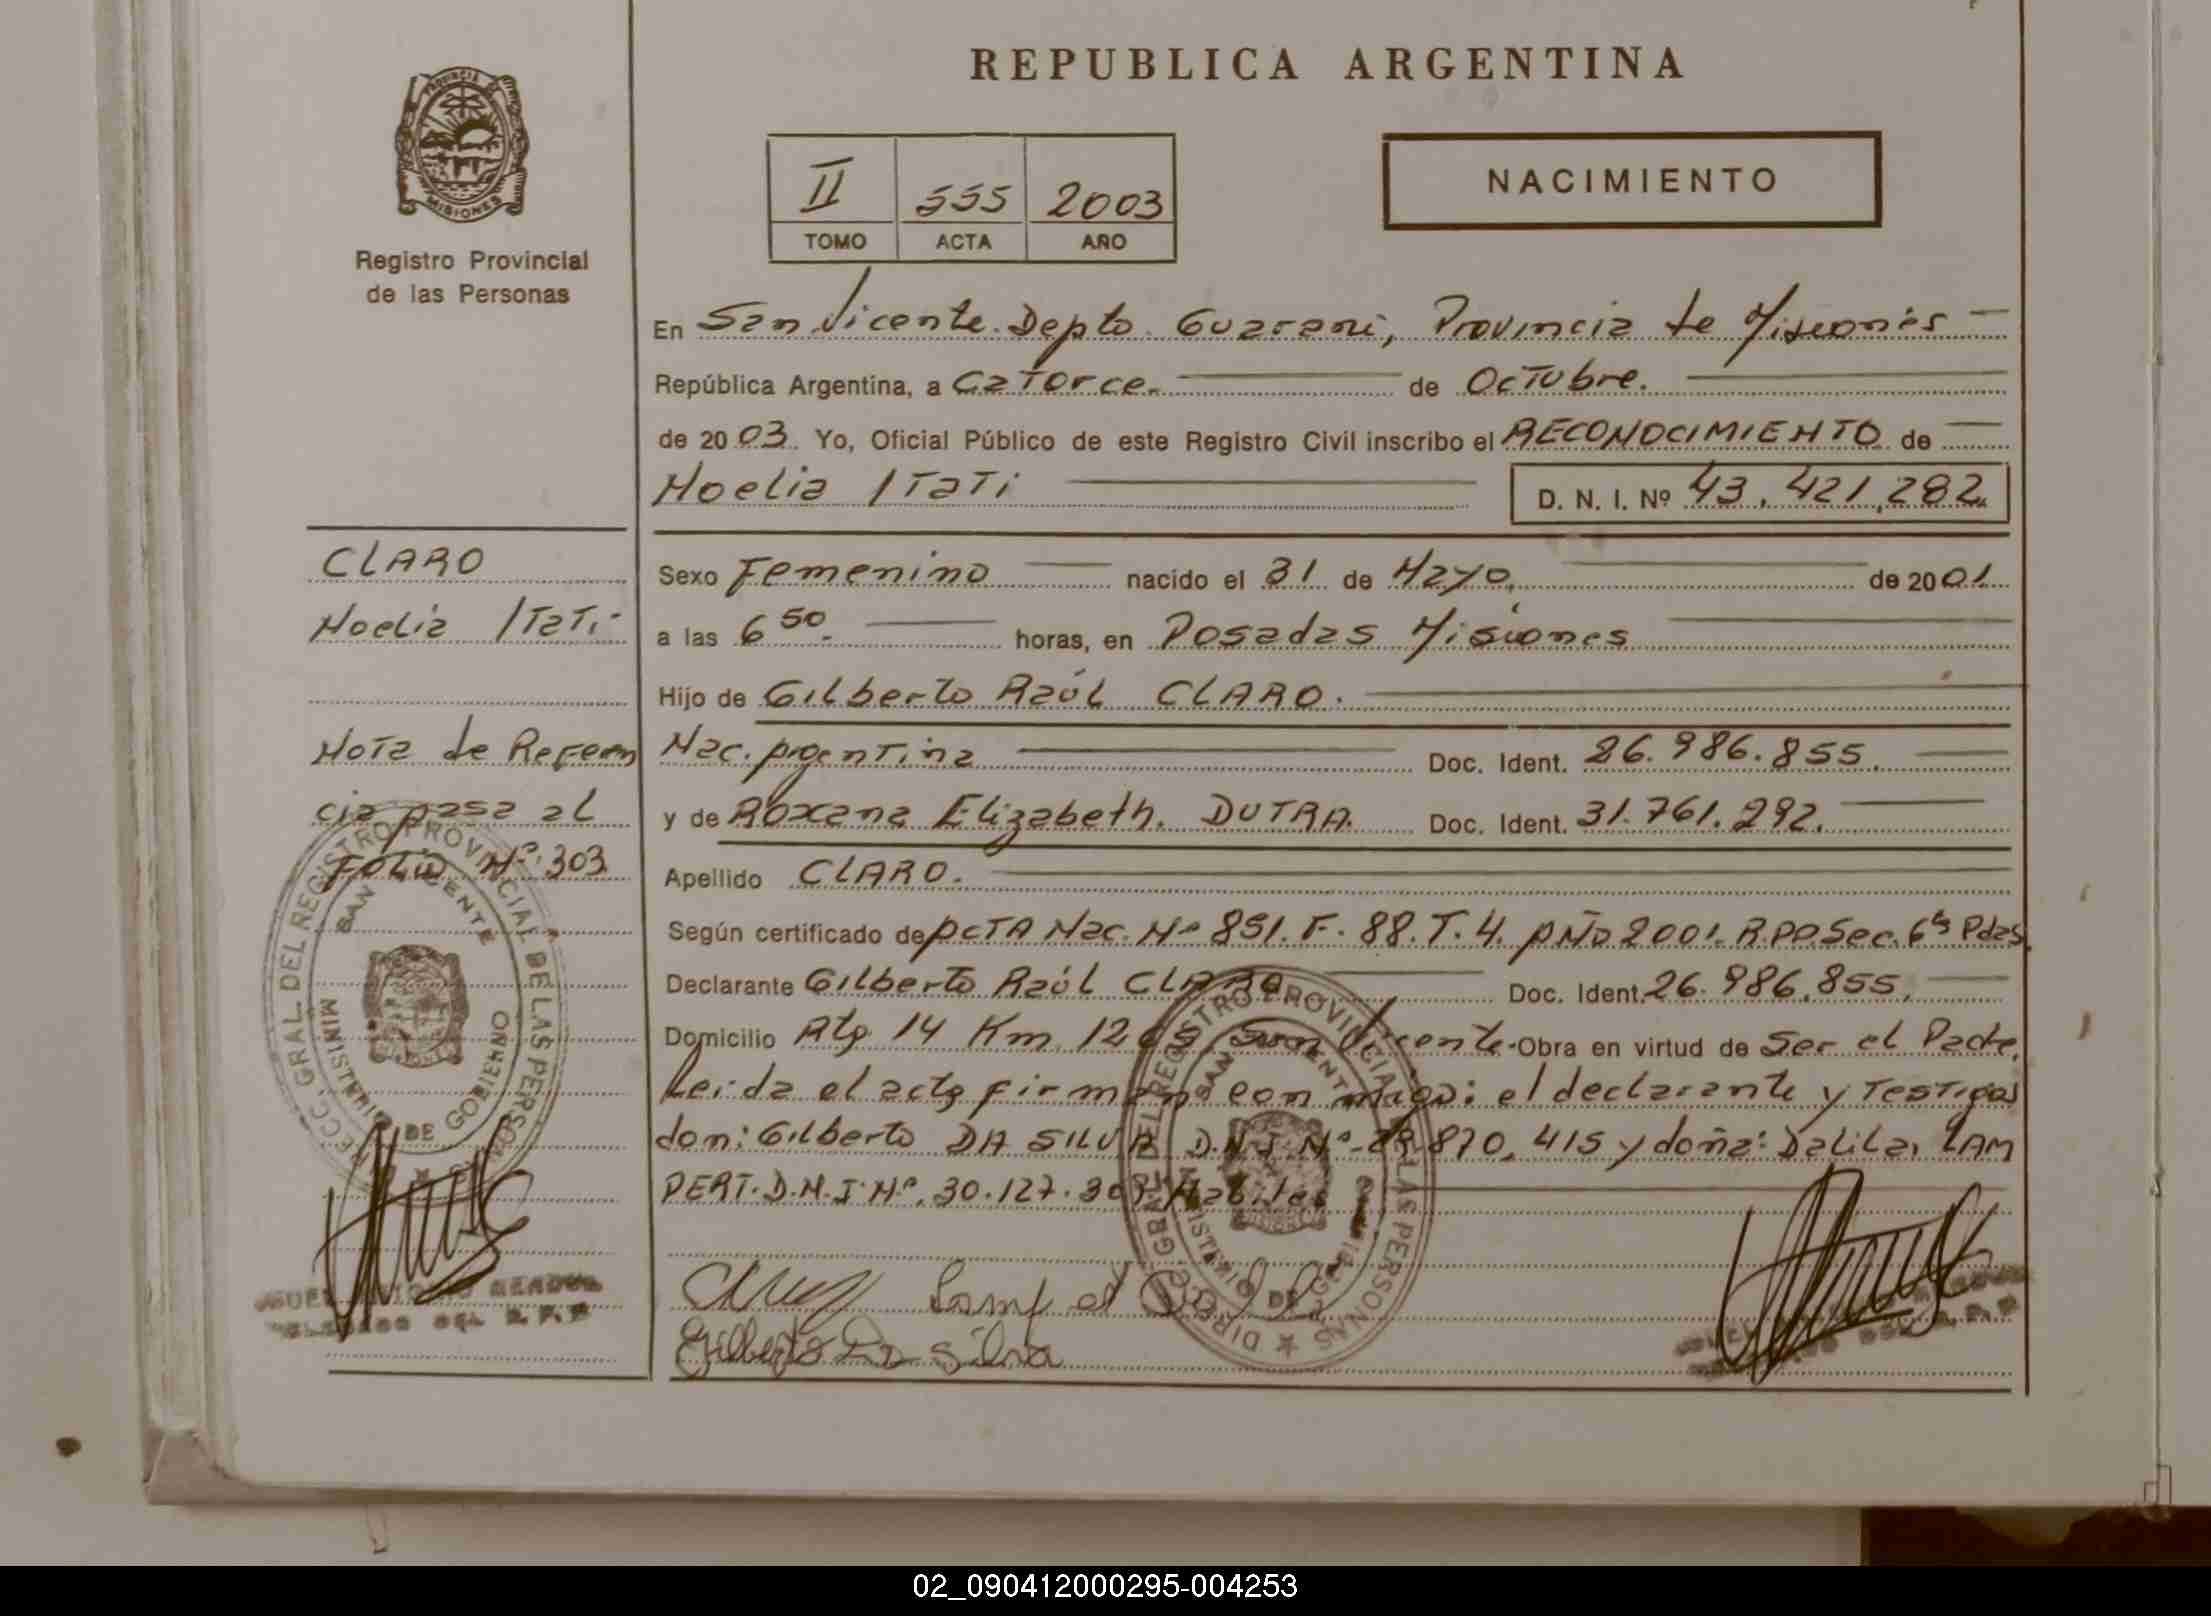 REPUBLICA ARGENTINA
PROVINCIA DE
MISIONES
Registro Provincial
de las Personas
II 555 2003
TOMO ACTA AÑO
NACIMIENTO
En San Vicente. Depto. Guarani, Provincia de Misiones
República Argentina, a Catorce. de Octubre.
de 2003. Yo, Oficial Público de este Registro Civil inscribo el RECONOCIMIENTO de
Noelia Itati D. N. I. Nº 43.421.282.
CLARO
Noelia Itati
Nota de Referen
cia pasa al
Folio Nº 303
Sexo Femenino nacido el 31 de Mayo. de 2001
a las 6 50. horas, en Posadas Misiones
Hijo de Gilberto Raúl CLARO.
Nac. Argentina Doc. Ident. 26.986.855.
y de Roxana Elizabeth. DUTRA. Doc. Ident. 31.761.292.
Apellido CLARO.
Según certificado de ACTA Nac. Nº 891. F. 88. T. 4. AÑO 2001. R.P.P. Sec. 6ª Pdas.
Declarante Gilberto Raúl CLARO Doc. Ident. 26.986.855.
Domicilio Rta 14 Km. San Vicente. Obra en virtud de Ser el Padre.
Leida el acta firman con migo: el declarante y Testigos
don: Gilberto DA SILVA D.N.I. Nº 870.415 y doña: Dalila, LAM
PERT. D.N.I. Nº. 30.127. Habiles
Lampert
Gilberto Da Silva
DIRECC. GRAL. DEL REGISTRO PROVINCIAL DE LAS PERSONAS
SAN VICENTE
MINISTERIO DE GOBIERNO
DIRECC. GRAL. DEL REGISTRO PROVINCIAL DE LAS PERSONAS
SAN VICENTE
MINISTERIO DE GOBIERNO
02_090412000295-004253